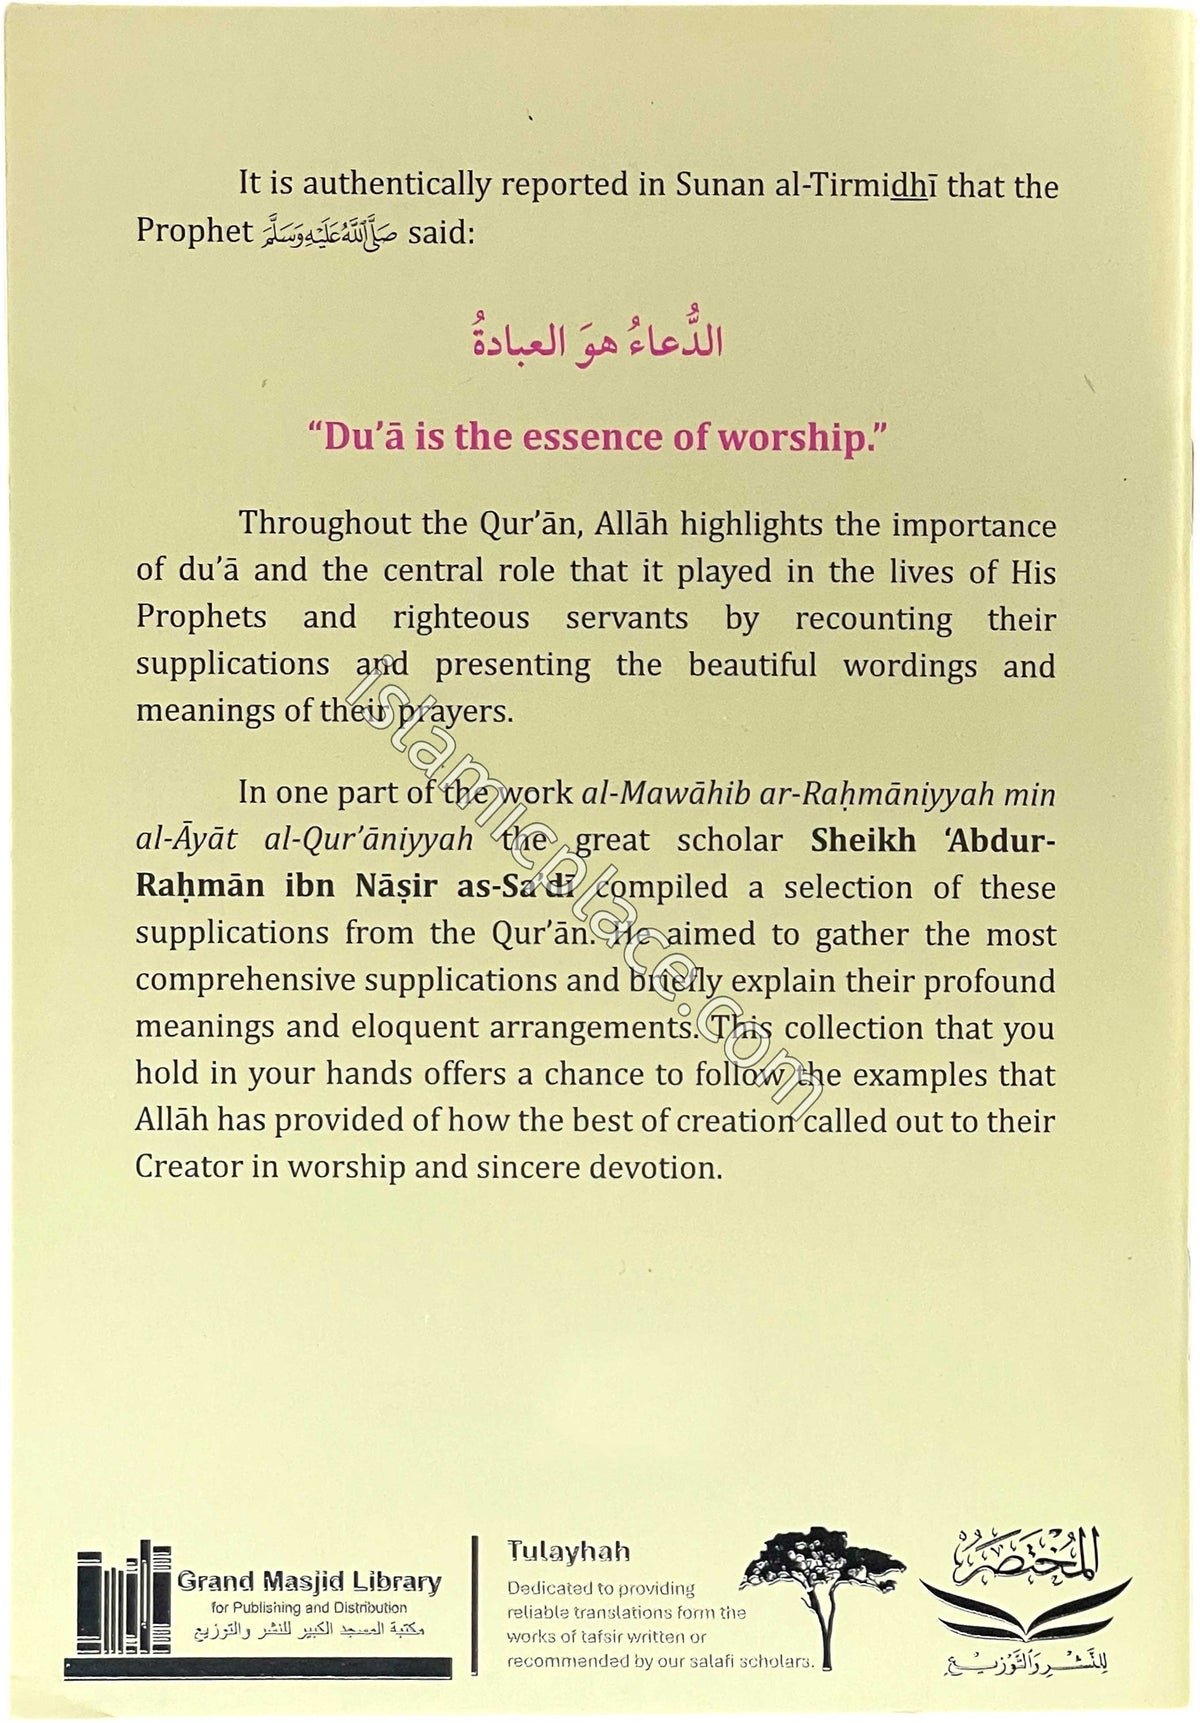 It is authentically reported in Sunan al-Tirmidhī that the
Prophet ﷺ said:
الدُّعاءُ هوَ العبادةُ
“Du’ā is the essence of worship.”
Throughout the Qur’ān, Allāh highlights the importance
of du’ā and the central role that it played in the lives of His
Prophets and righteous servants by recounting their
supplications and presenting the beautiful wordings and
meanings of their prayers.
In one part of the work al-Mawāhib ar-Raḥmāniyyah min
al-Āyāt al-Qur’āniyyah the great scholar Sheikh ‘Abdur-
Raḥmān ibn Nāṣir as-Sa’dī compiled a selection of these
supplications from the Qur’ān. He aimed to gather the most
comprehensive supplications and briefly explain their profound
meanings and eloquent arrangements. This collection that you
hold in your hands offers a chance to follow the examples that
Allāh has provided of how the best of creation called out to their
Creator in worship and sincere devotion.
islamicplace.com
Grand Masjid Library
for Publishing and Distribution
مكتبة المسجد الكبير للنشر والتوزيع
Tulayhah
Dedicated to providing
reliable translations form the
works of tafsir written or
recommended by our salafi scholars.
المُخْتَصَر
لِلنَّشْرِ وَالتَّوْزِيْع